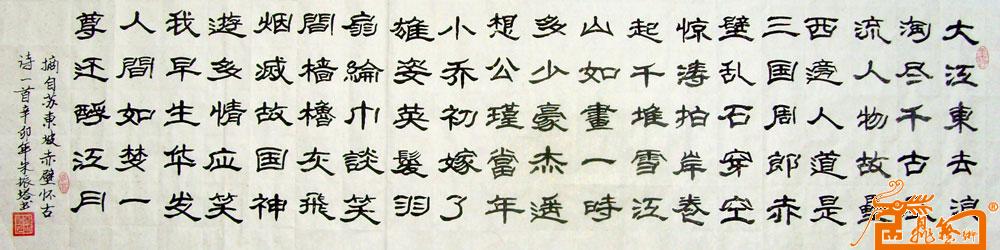 大江東去浪
淘尽千古
流人物故壘
西邊人道是
三国周郎赤
壁乱石穿空
惊涛拍岸卷
起千堆雪江
山如畫一時
多少豪杰遥
想公瑾當年
小乔初嫁了
雄姿英髮羽
扇綸巾談笑
間檣櫓灰飛
烟滅故国神
遊多情应笑
我早生华发
人間如梦一
尊还酹江月
摘自苏東坡赤壁怀古
诗一首辛卯年朱振书